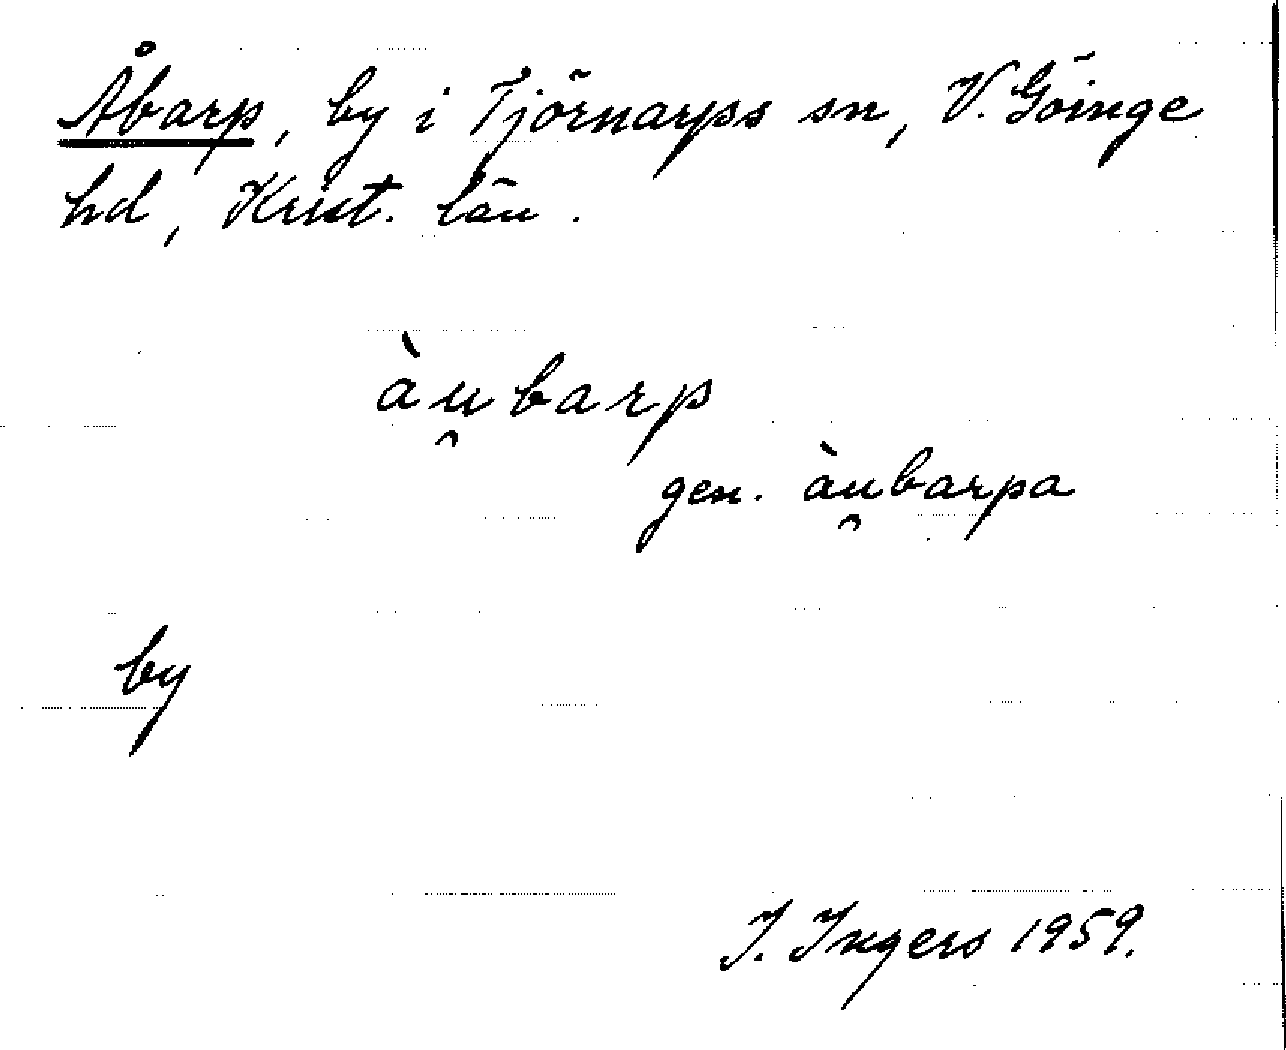 Åbarp, by i Tjörnarps sn, V. Göinge
hd, Krist. län.
àu̯barp
gen. àu̯barpa
by
I. Ingers 1959.